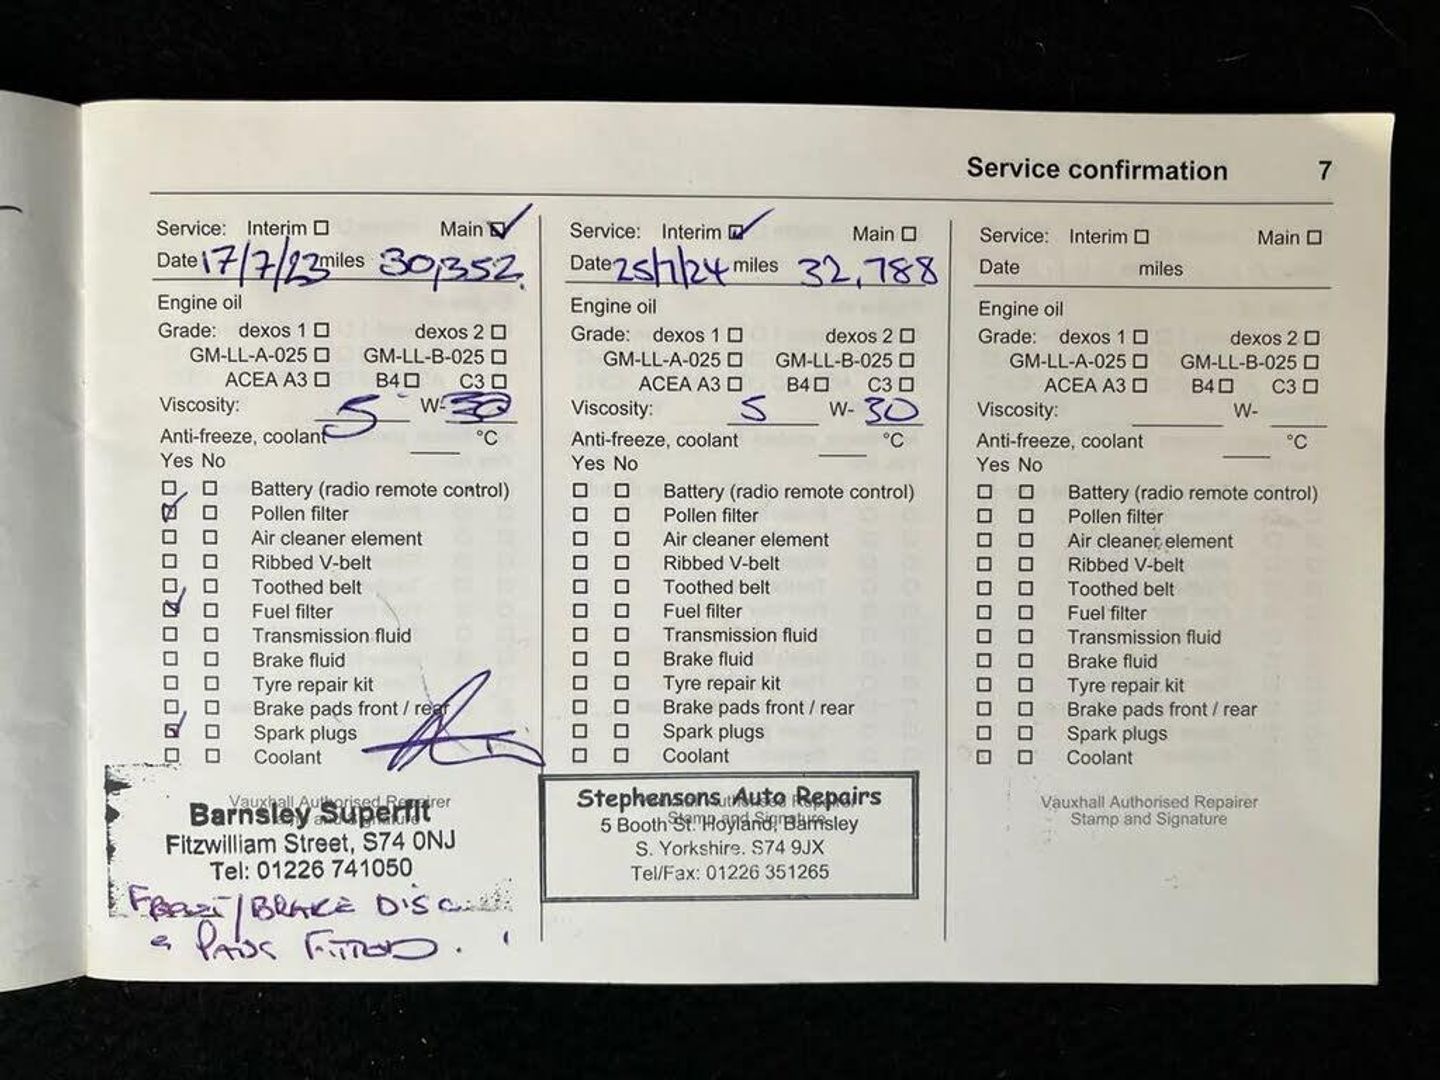 Service confirmation 7
Service: Interim ☐ Main ☑
Date 17/7/23 miles 30,352.
Engine oil
Grade: dexos 1 ☐ dexos 2 ☐
GM-LL-A-025 ☐ GM-LL-B-025 ☐
ACEA A3 ☐ B4 ☐ C3 ☐
Viscosity: 5 W- 30
Anti-freeze, coolant °C
Yes No
☐ ☐ Battery (radio remote control)
☑ ☐ Pollen filter
☐ ☐ Air cleaner element
☐ ☐ Ribbed V-belt
☐ ☐ Toothed belt
☑ ☐ Fuel filter
☐ ☐ Transmission fluid
☐ ☐ Brake fluid
☐ ☐ Tyre repair kit
☐ ☐ Brake pads front / rear
☑ ☐ Spark plugs
☐ ☐ Coolant
Vauxhall Authorised Repairer
Stamp and Signature
Barnsley Superfit
Fitzwilliam Street, S74 0NJ
Tel: 01226 741050
/BRAKE DISC
& PADS FITTED.
Service: Interim ☑ Main ☐
Date 25/7/24 miles 32,788
Engine oil
Grade: dexos 1 ☐ dexos 2 ☐
GM-LL-A-025 ☐ GM-LL-B-025 ☐
ACEA A3 ☐ B4 ☐ C3 ☐
Viscosity: 5 W- 30
Anti-freeze, coolant °C
Yes No
☐ ☐ Battery (radio remote control)
☐ ☐ Pollen filter
☐ ☐ Air cleaner element
☐ ☐ Ribbed V-belt
☐ ☐ Toothed belt
☐ ☐ Fuel filter
☐ ☐ Transmission fluid
☐ ☐ Brake fluid
☐ ☐ Tyre repair kit
☐ ☐ Brake pads front / rear
☐ ☐ Spark plugs
☐ ☐ Coolant
Vauxhall Authorised Repairer
Stamp and Signature
Stephensons Auto Repairs
5 Booth St. Hoyland, Barnsley
S. Yorkshire. S74 9JX
Tel/Fax: 01226 351265
Service: Interim ☐ Main ☐
Date miles
Engine oil
Grade: dexos 1 ☐ dexos 2 ☐
GM-LL-A-025 ☐ GM-LL-B-025 ☐
ACEA A3 ☐ B4 ☐ C3 ☐
Viscosity: W-
Anti-freeze, coolant °C
Yes No
☐ ☐ Battery (radio remote control)
☐ ☐ Pollen filter
☐ ☐ Air cleaner element
☐ ☐ Ribbed V-belt
☐ ☐ Toothed belt
☐ ☐ Fuel filter
☐ ☐ Transmission fluid
☐ ☐ Brake fluid
☐ ☐ Tyre repair kit
☐ ☐ Brake pads front / rear
☐ ☐ Spark plugs
☐ ☐ Coolant
Vauxhall Authorised Repairer
Stamp and Signature